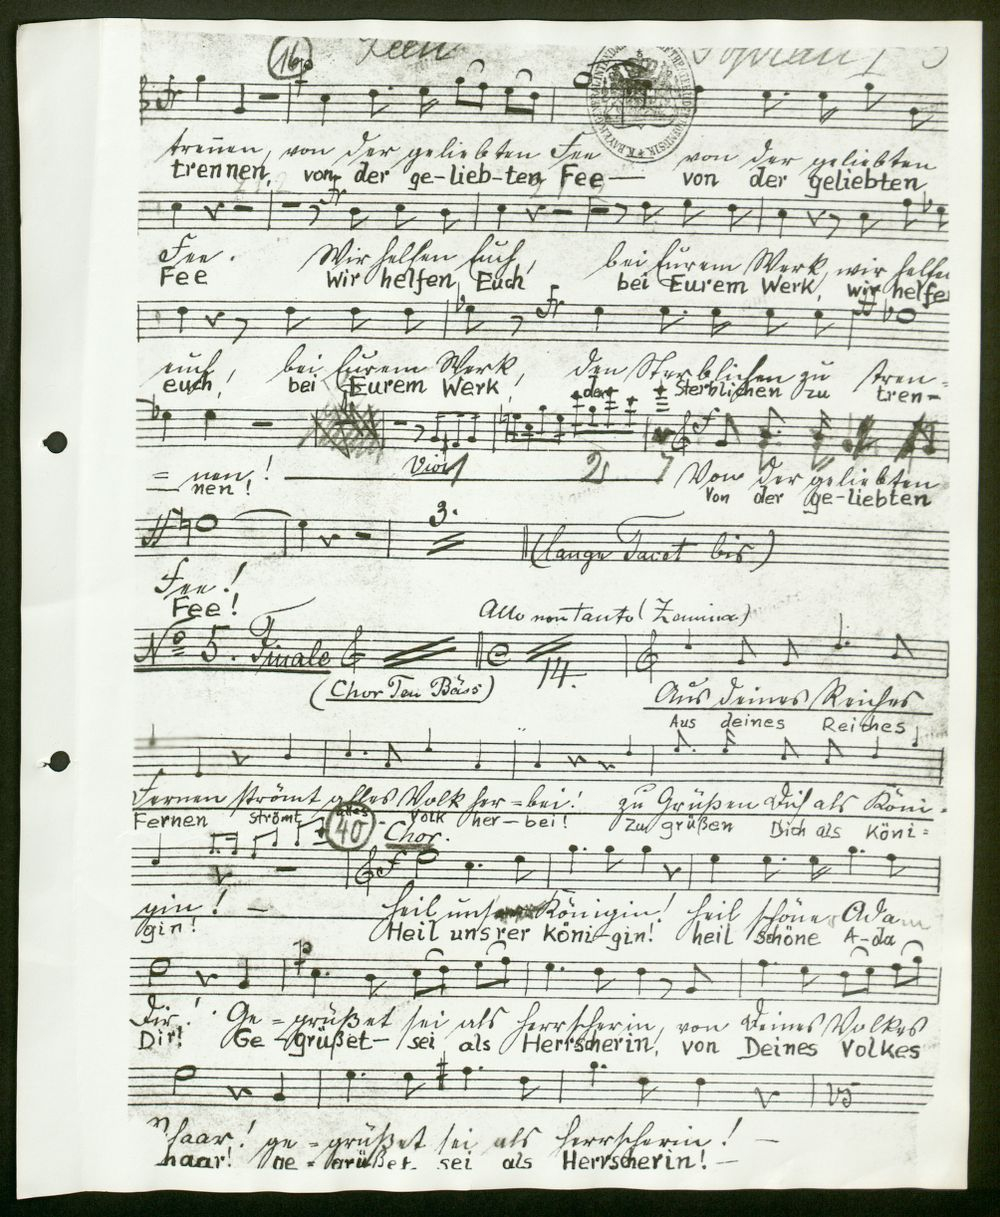 16 Feen Sopran I
trennen, von der geliebten Fee von der geliebten
trennen, von der ge-lieb-ten Fee— von der geliebten
Fee. Wir helfen Euch, bei Eurem Werk, wir helfen
Fee Wir helfen Euch bei Eurem Werk, wir helfe
euch, bei Eurem Werk, den Sterblichen zu tren-
euch, bei Eurem Werk, den Sterblichen zu tren-
= nen! Viol 1 2 Von der geliebten
nen! Von der ge-liebten
3.
(lange Tacet bis)
Fee!
Fee!
Allo non Tanto (Zemina)
No 5. Finale 14.
(Chor Ten Bäss) Aus deines Reiches
Aus deines Reiches
Fernen strömt alles Volk her=bei! zu Grüßen Dich als Köni-
Fernen strömt alles Volk her-bei! Zu grüßen Dich als Köni=
40 Chor.
gin! — Heil unsrer Königin! heil schöne Ada
gin! Heil unsrer Köni-gin! heil schöne A-da
Dir! Ge=grüßet sei als Herrscherin, von Deines Volkes
Dir! Ge-grüßet- sei als Herrscherin, von Deines Volkes
Schaar! ge=grüßet sei als Herrscherin! —
haar! ge=grüßet sei als Herrscherin! —